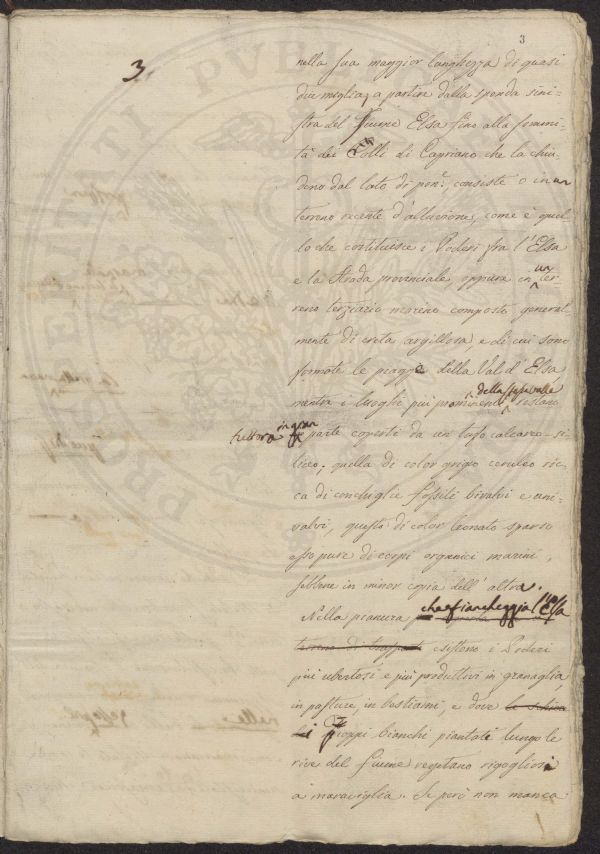 3
3
nella sua maggior lunghezza di quasi
due miglia, a partire dalla sponda sini-
stra del Fiume Elsa fino alla sommi-
tà dei Colli di Capriano che la chiu-
dono dal lato di pon.e consiste o in un
terreno recente d'alluvione, come è quel-
lo che costituisce i Poderi fra l'Elsa
e la strada provinciale oppure in un ter-
reno terziario marino composto general-
mente di creta argillosa e di cui sono
formate le piagge della Val d'Elsa
mentre i luoghi più prominenti della stessa valle restano
tuttora in gran parte coperti da un tufo calcareo-si-
liceo, quella di color grigio ceruleo ric-
ca di conchiglie fossili bivalvi e uni-
valvi, questo di color leonato sparso
esso pure di corpi organici marini,
sebbene in minor copia dell'altra.
Nella pianura che fiancheggia l'Elsa
terreno di trasporto esistono i Poderi
più ubertosi e più produttivi in granaglia,
in pasture, in bestiami, e dove
i pioppi bianchi piantati lungo le
rive del fiume vegetano rigogliosi
a maraviglia. Se però non manca